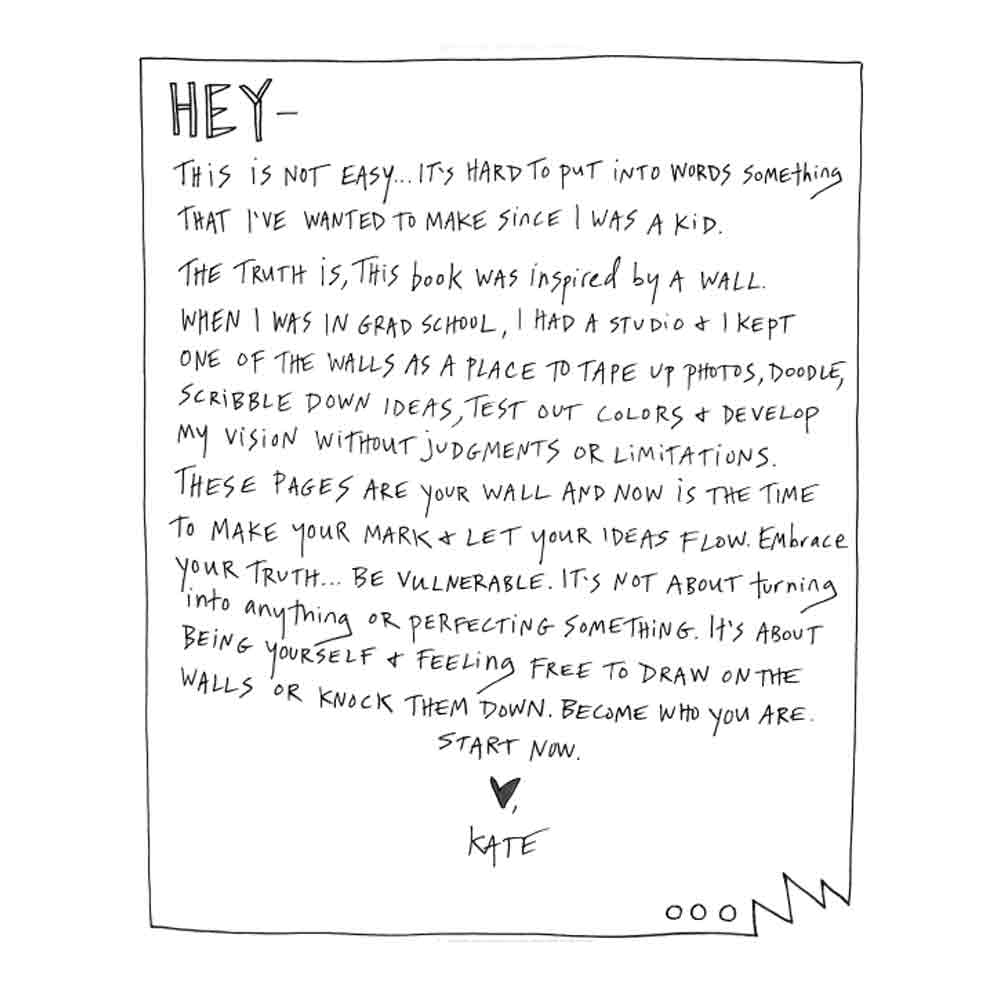 HEY-
THIS IS NOT EASY... IT'S HARD TO PUT INTO WORDS SOMEthing
THAT I'VE WANTED TO MAKE SINCE I WAS A KID.
THE TRUTH IS, THIS book WAS inspired by A WALL.
WHEN I WAS IN GRAD SCHOOL, I HAD A STUDIO & I KEPT
ONE OF THE WALLS AS A PLACE TO TAPE UP PHOTOS, DOODLE,
SCRIBBLE DOWN IDEAS, TEST OUT COLORS & DEVELOP
MY VISION WITHOUT JUDGMENTS OR LIMITATIONS.
THESE PAGES ARE YOUR WALL AND NOW IS THE TIME
TO MAKE YOUR MARK & LET YOUR IDEAS FLOW. EMbrace
YOUR TRUTH... BE VULNERABLE. IT'S NOT ABOUT turning
into anything OR PERFECTING SOMETHING. IT'S ABOUT
BEING YOURSELF & FEELing FREE TO DRAW ON THE
WALLS OR KNOCK THEM DOWN. BECOME WHO YOU ARE.
START NOW.
♥,
KATE